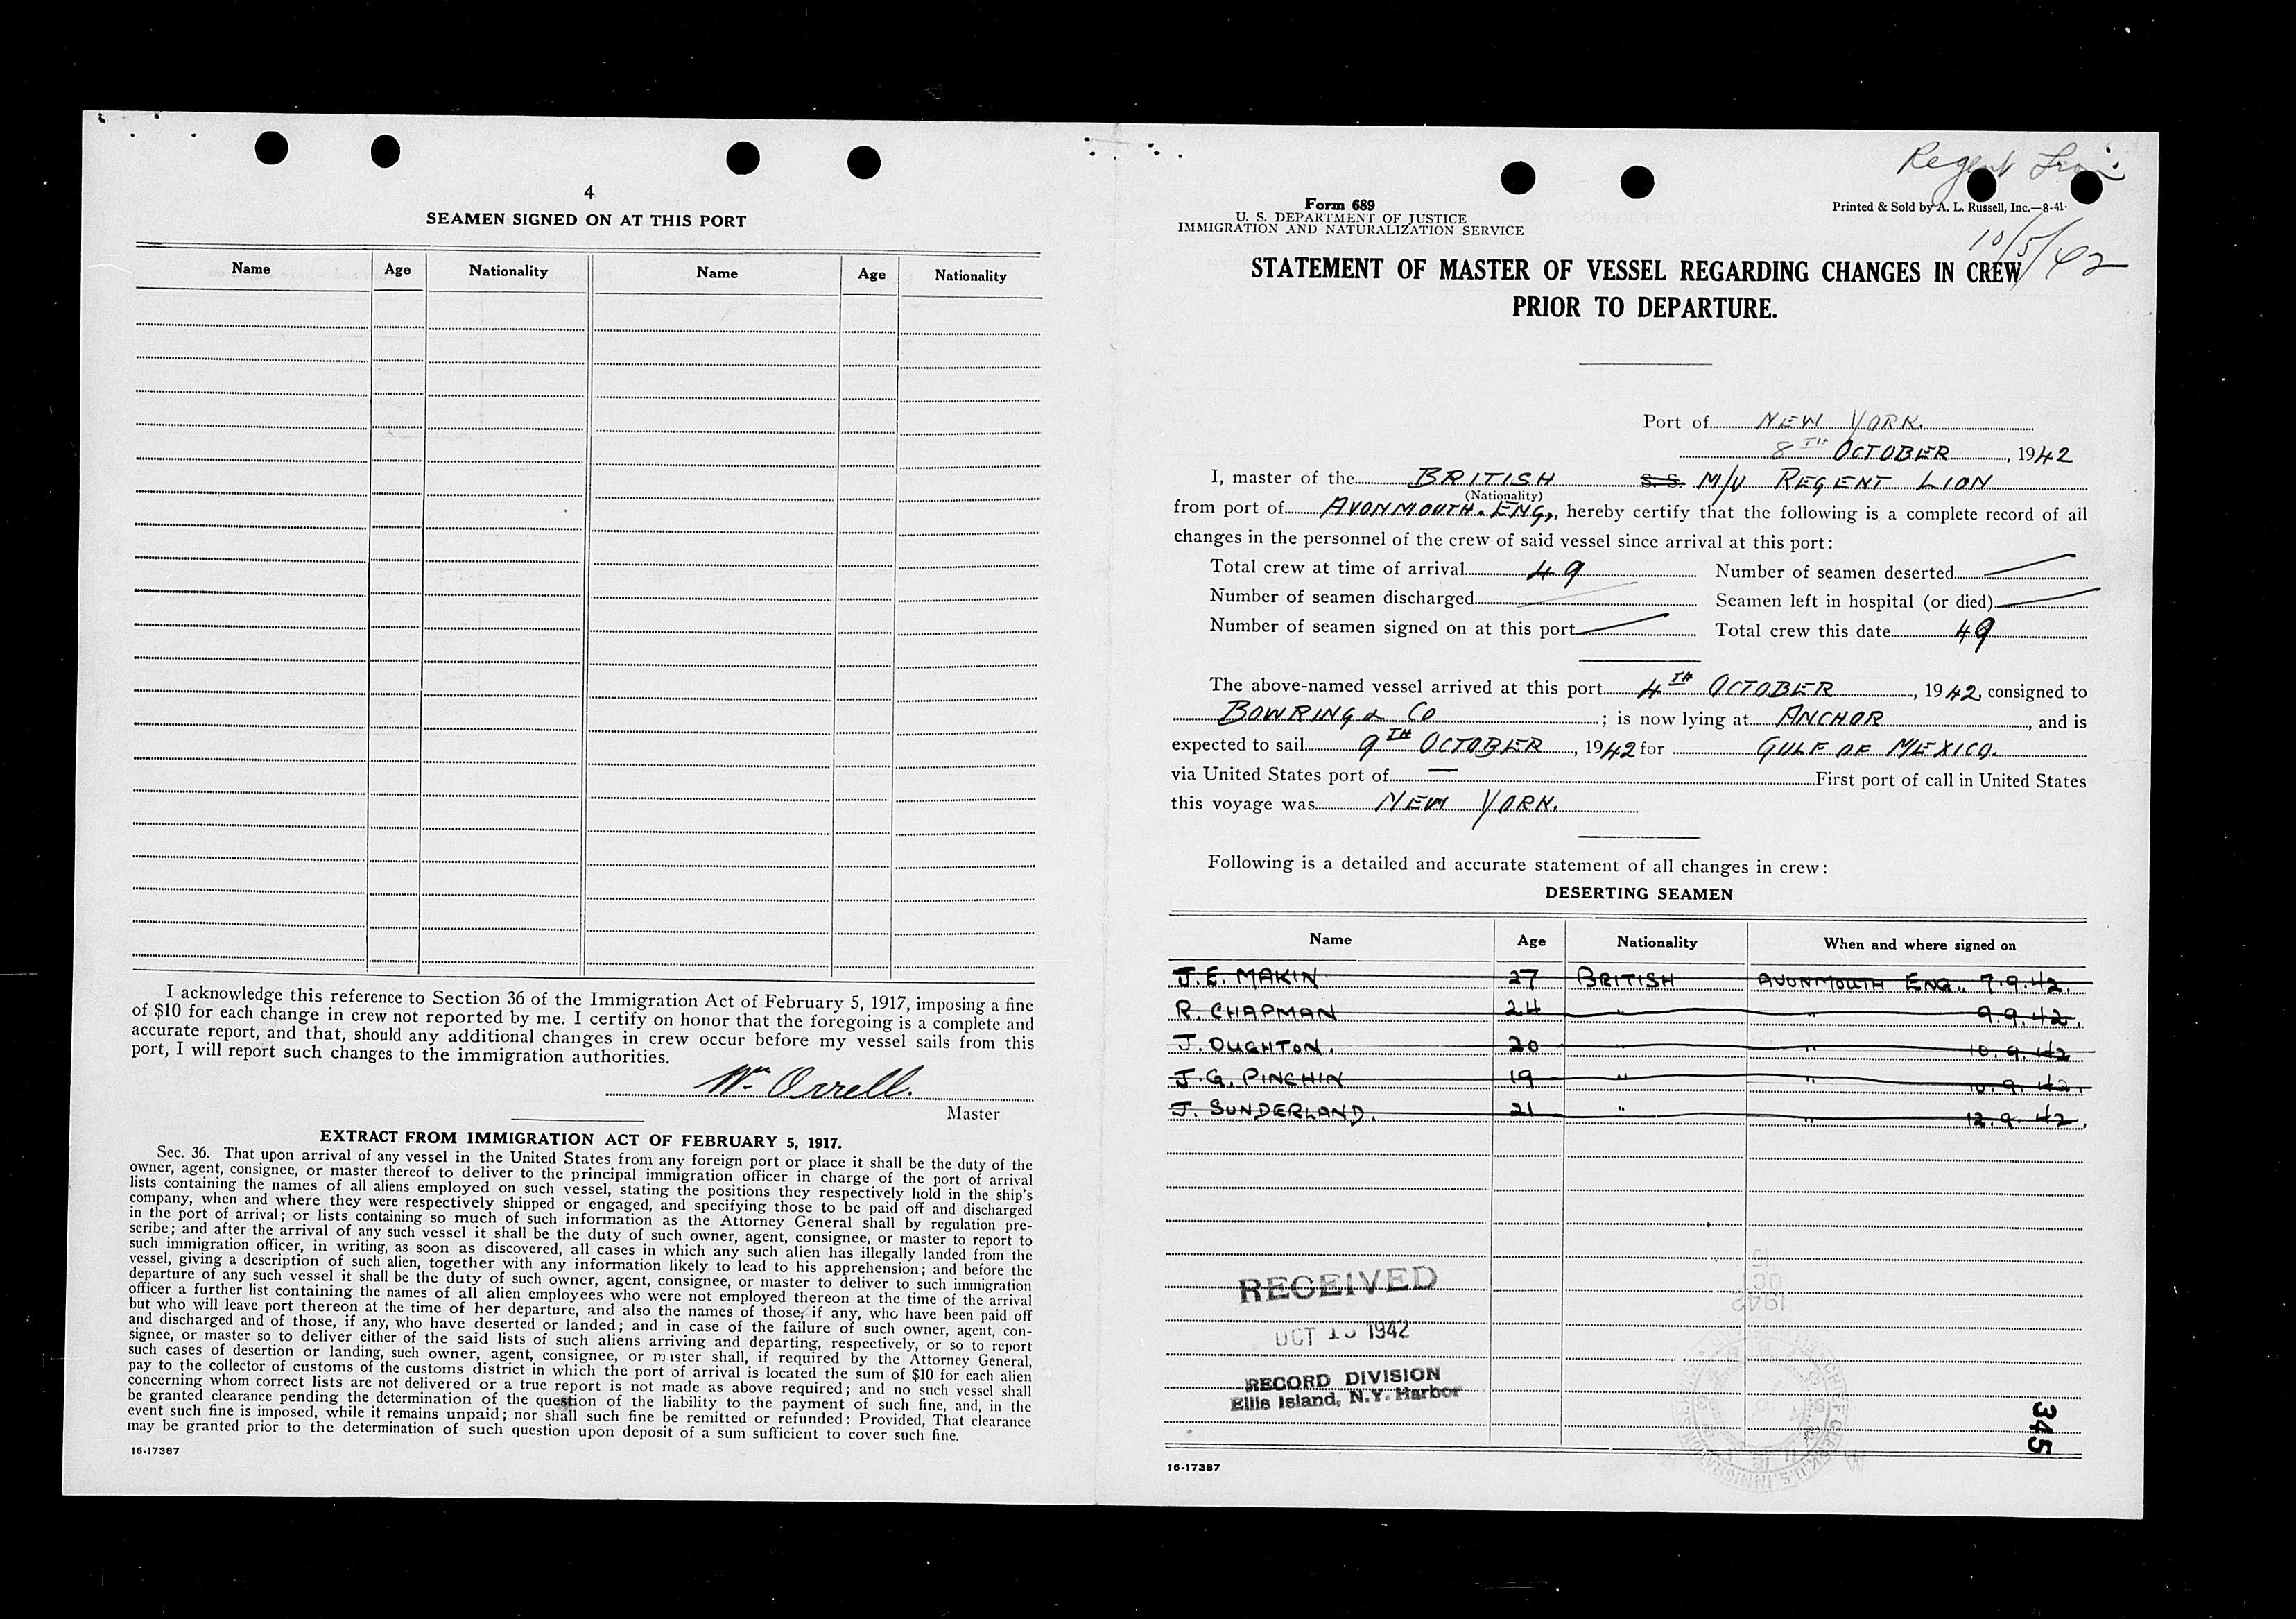 4
SEAMEN SIGNED ON AT THIS PORT
Name Age Nationality Name Age Nationality
I acknowledge this reference to Section 36 of the Immigration Act of February 5, 1917, imposing a fine
of $10 for each change in crew not reported by me. I certify on honor that the foregoing is a complete and
accurate report, and that, should any additional changes in crew occur before my vessel sails from this
port, I will report such changes to the immigration authorities.
Wm Orrell.
Master
EXTRACT FROM IMMIGRATION ACT OF FEBRUARY 5, 1917.
Sec. 36. That upon arrival of any vessel in the United States from any foreign port or place it shall be the duty of the
owner, agent, consignee, or master thereof to deliver to the principal immigration officer in charge of the port of arrival
lists containing the names of all aliens employed on such vessel, stating the positions they respectively hold in the ship's
company, when and where they were respectively shipped or engaged, and specifying those to be paid off and discharged
in the port of arrival; or lists containing so much of such information as the Attorney General shall by regulation pre-
scribe; and after the arrival of any such vessel it shall be the duty of such owner, agent, consignee, or master to report to
such immigration officer, in writing, as soon as discovered, all cases in which any such alien has illegally landed from the
vessel, giving a description of such alien, together with any information likely to lead to his apprehension; and before the
departure of any such vessel it shall be the duty of such owner, agent, consignee, or master to deliver to such immigration
officer a further list containing the names of all alien employees who were not employed thereon at the time of the arrival
but who will leave port thereon at the time of her departure, and also the names of those, if any, who have been paid off
and discharged and of those, if any, who have deserted or landed; and in case of the failure of such owner, agent, con-
signee, or master so to deliver either of the said lists of such aliens arriving and departing, respectively, or so to report
such cases of desertion or landing, such owner, agent, consignee, or master shall, if required by the Attorney General,
pay to the collector of customs of the customs district in which the port of arrival is located the sum of $10 for each alien
concerning whom correct lists are not delivered or a true report is not made as above required; and no such vessel shall
be granted clearance pending the determination of the question of the liability to the payment of such fine, and, in the
event such fine is imposed, while it remains unpaid; nor shall such fine be remitted or refunded: Provided, That clearance
may be granted prior to the determination of such question upon deposit of a sum sufficient to cover such fine.
16-17387
Regent Lion
Form 689
U. S. DEPARTMENT OF JUSTICE
IMMIGRATION AND NATURALIZATION SERVICE
Printed & Sold by A. L. Russell, Inc.—8-41
10/5/42
STATEMENT OF MASTER OF VESSEL REGARDING CHANGES IN CREW
PRIOR TO DEPARTURE.
Port of NEW YORK.
8TH OCTOBER, 1942
I, master of the BRITISH S. S. M/V REGENT LION
(Nationality)
from port of AVONMOUTH. ENG., hereby certify that the following is a complete record of all
changes in the personnel of the crew of said vessel since arrival at this port:
Total crew at time of arrival 49 Number of seamen deserted
Number of seamen discharged Seamen left in hospital (or died)
Number of seamen signed on at this port Total crew this date 49
The above-named vessel arrived at this port 4TH OCTOBER, 1942, consigned to
BOWRING & CO; is now lying at ANCHOR, and is
expected to sail 9TH OCTOBER, 1942 for GULF OF MEXICO.
via United States port of — First port of call in United States
this voyage was NEW YORK.
Following is a detailed and accurate statement of all changes in crew:
DESERTING SEAMEN
Name Age Nationality When and where signed on
J. E. MAKIN 27 BRITISH AVONMOUTH ENG. 7.9.42.
R. CHAPMAN 24 " " 9.9.42.
J. OUGHTON. 20 " 10.9.42
J. G. PINCHIN 19 " " 10.9.42.
J. SUNDERLAND. 21 " " 12.9.42.
15
OCT
1942
RECEIVED
OCT 1942
RECORD DIVISION
Ellis Island, N.Y. Harbor
345
16-17387